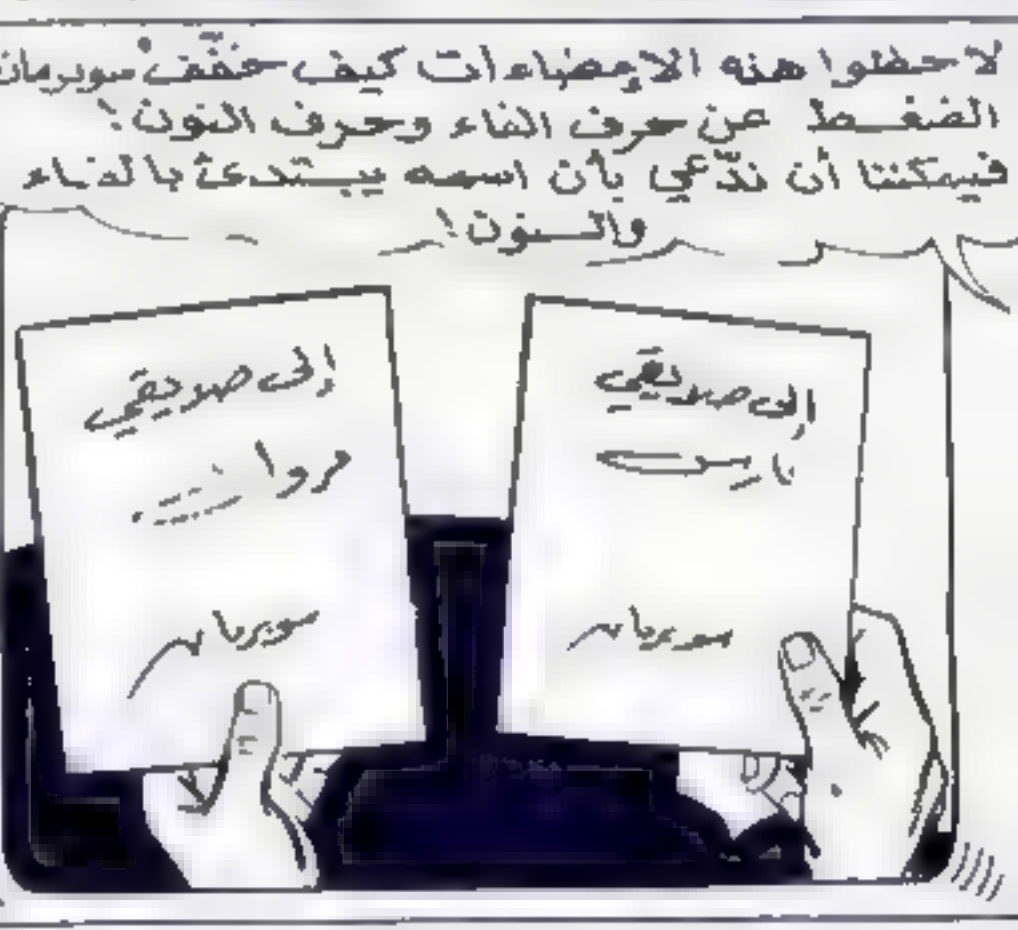 لاحظوا هذه الإمضاءات كيف خفّف سوبرمان
الضغط عن حرف الفاء وحرف النون!
فيمكننا أن ندّعي بأن اسمه يبتدئ بالفاء
والنون!
إلى صديقي
سوبرمان
إلى صديقي
مروان
سوبرمان